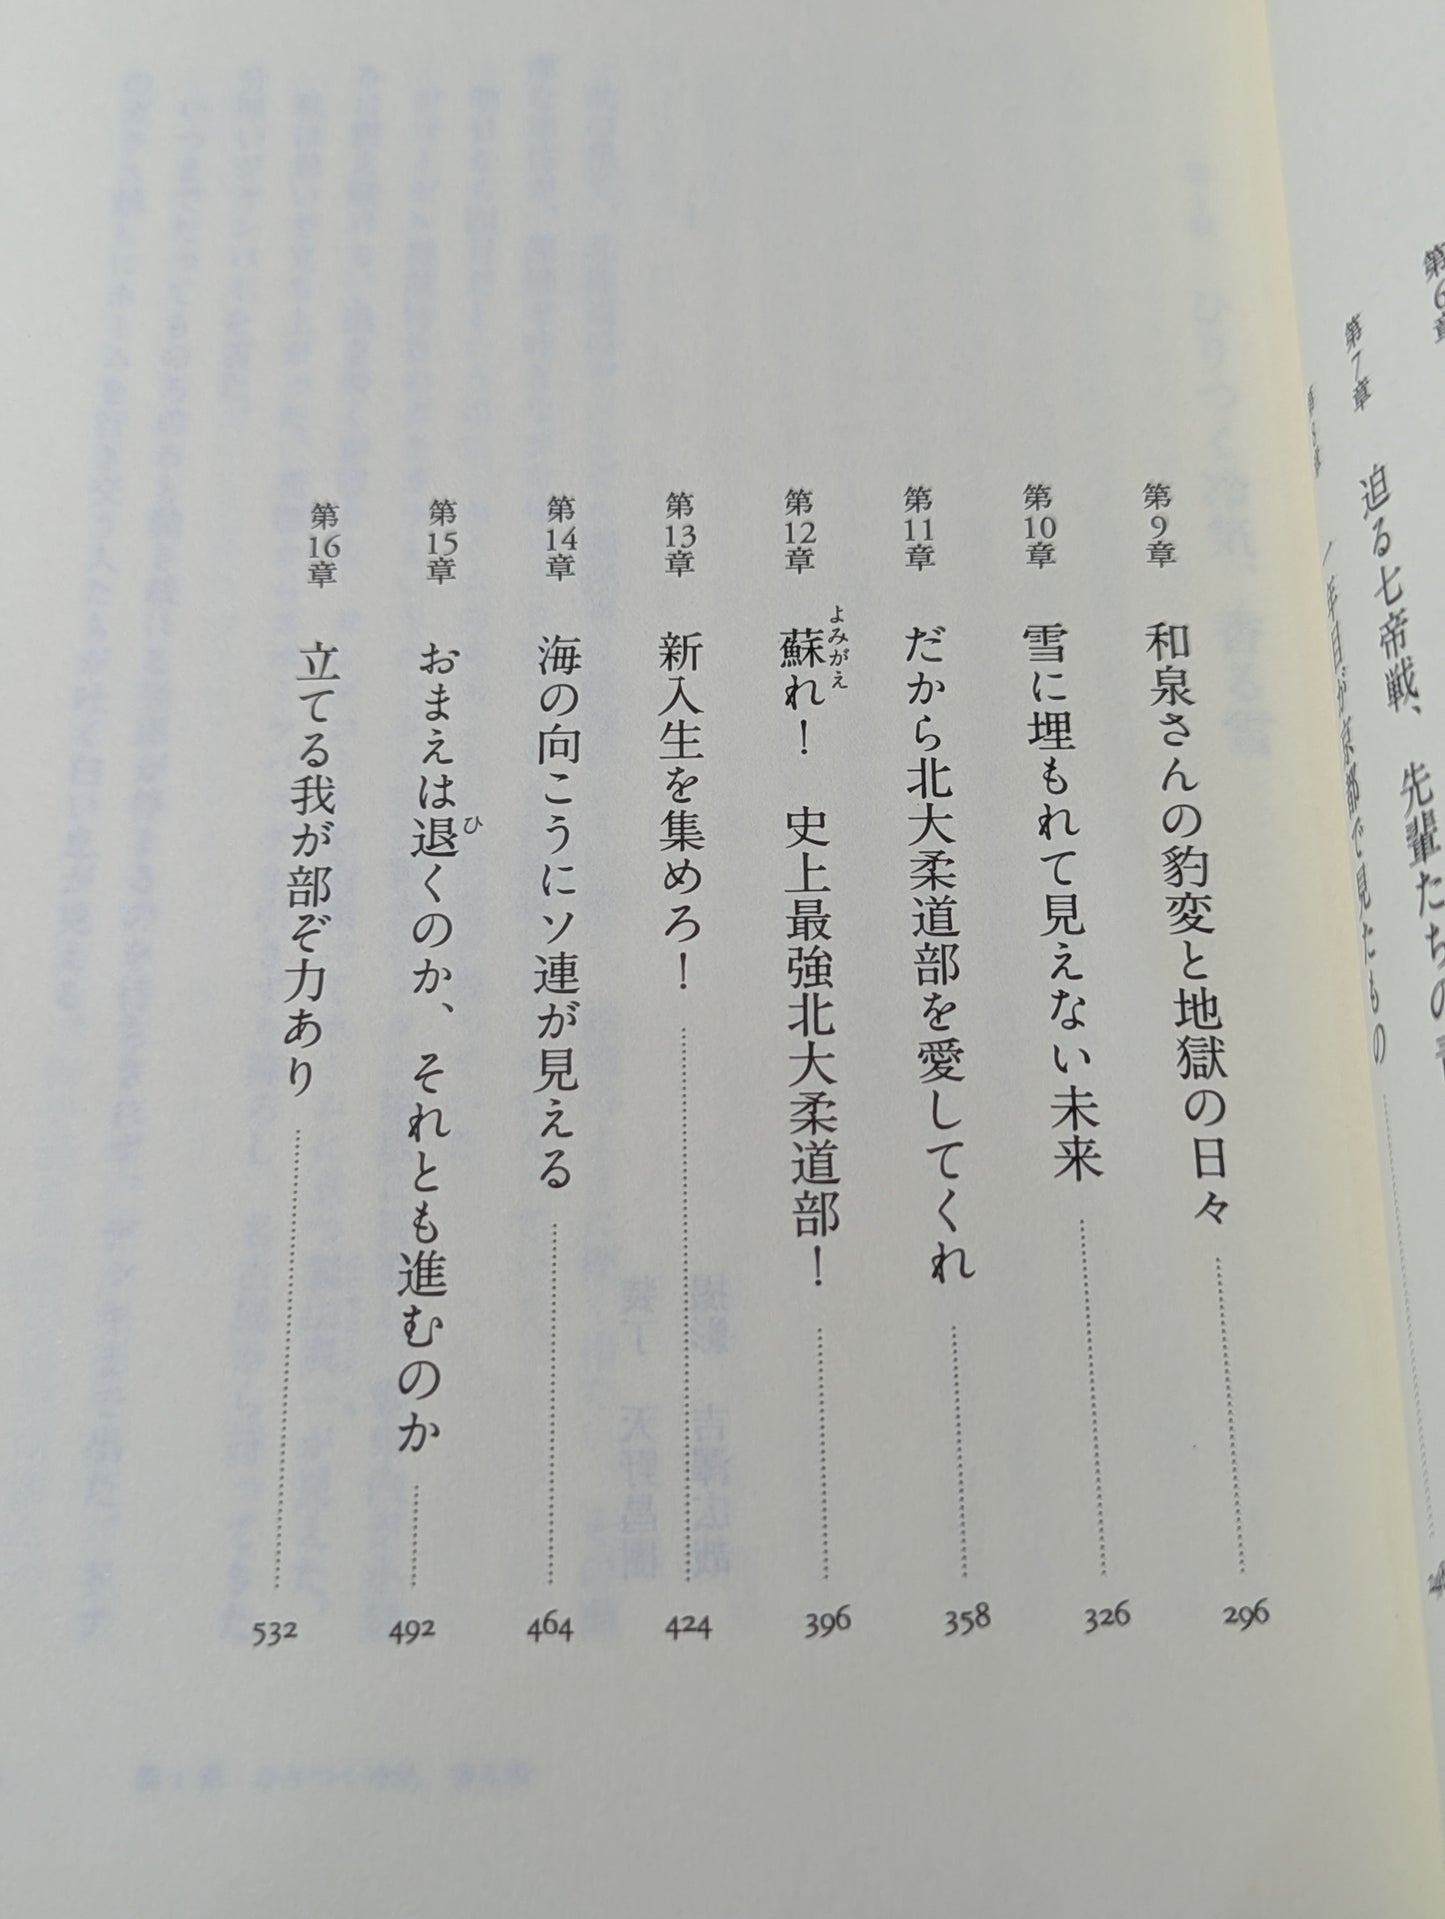 第6章
第7章 迫る七帝戦、先輩たちの
年目が京都で見たもの
第9章 和泉さんの豹変と地獄の日々 296
第10章 雪に埋もれて見えない未来 326
第11章 だから北大柔道部を愛してくれ 358
第12章 蘇れ! 史上最強北大柔道部! 396
よみがえ
第13章 新入生を集めろ! 424
第14章 海の向こうにソ連が見える 464
第15章 おまえは退くのか、それとも進むのか 492
ひ
第16章 立てる我が部ぞ力あり 532